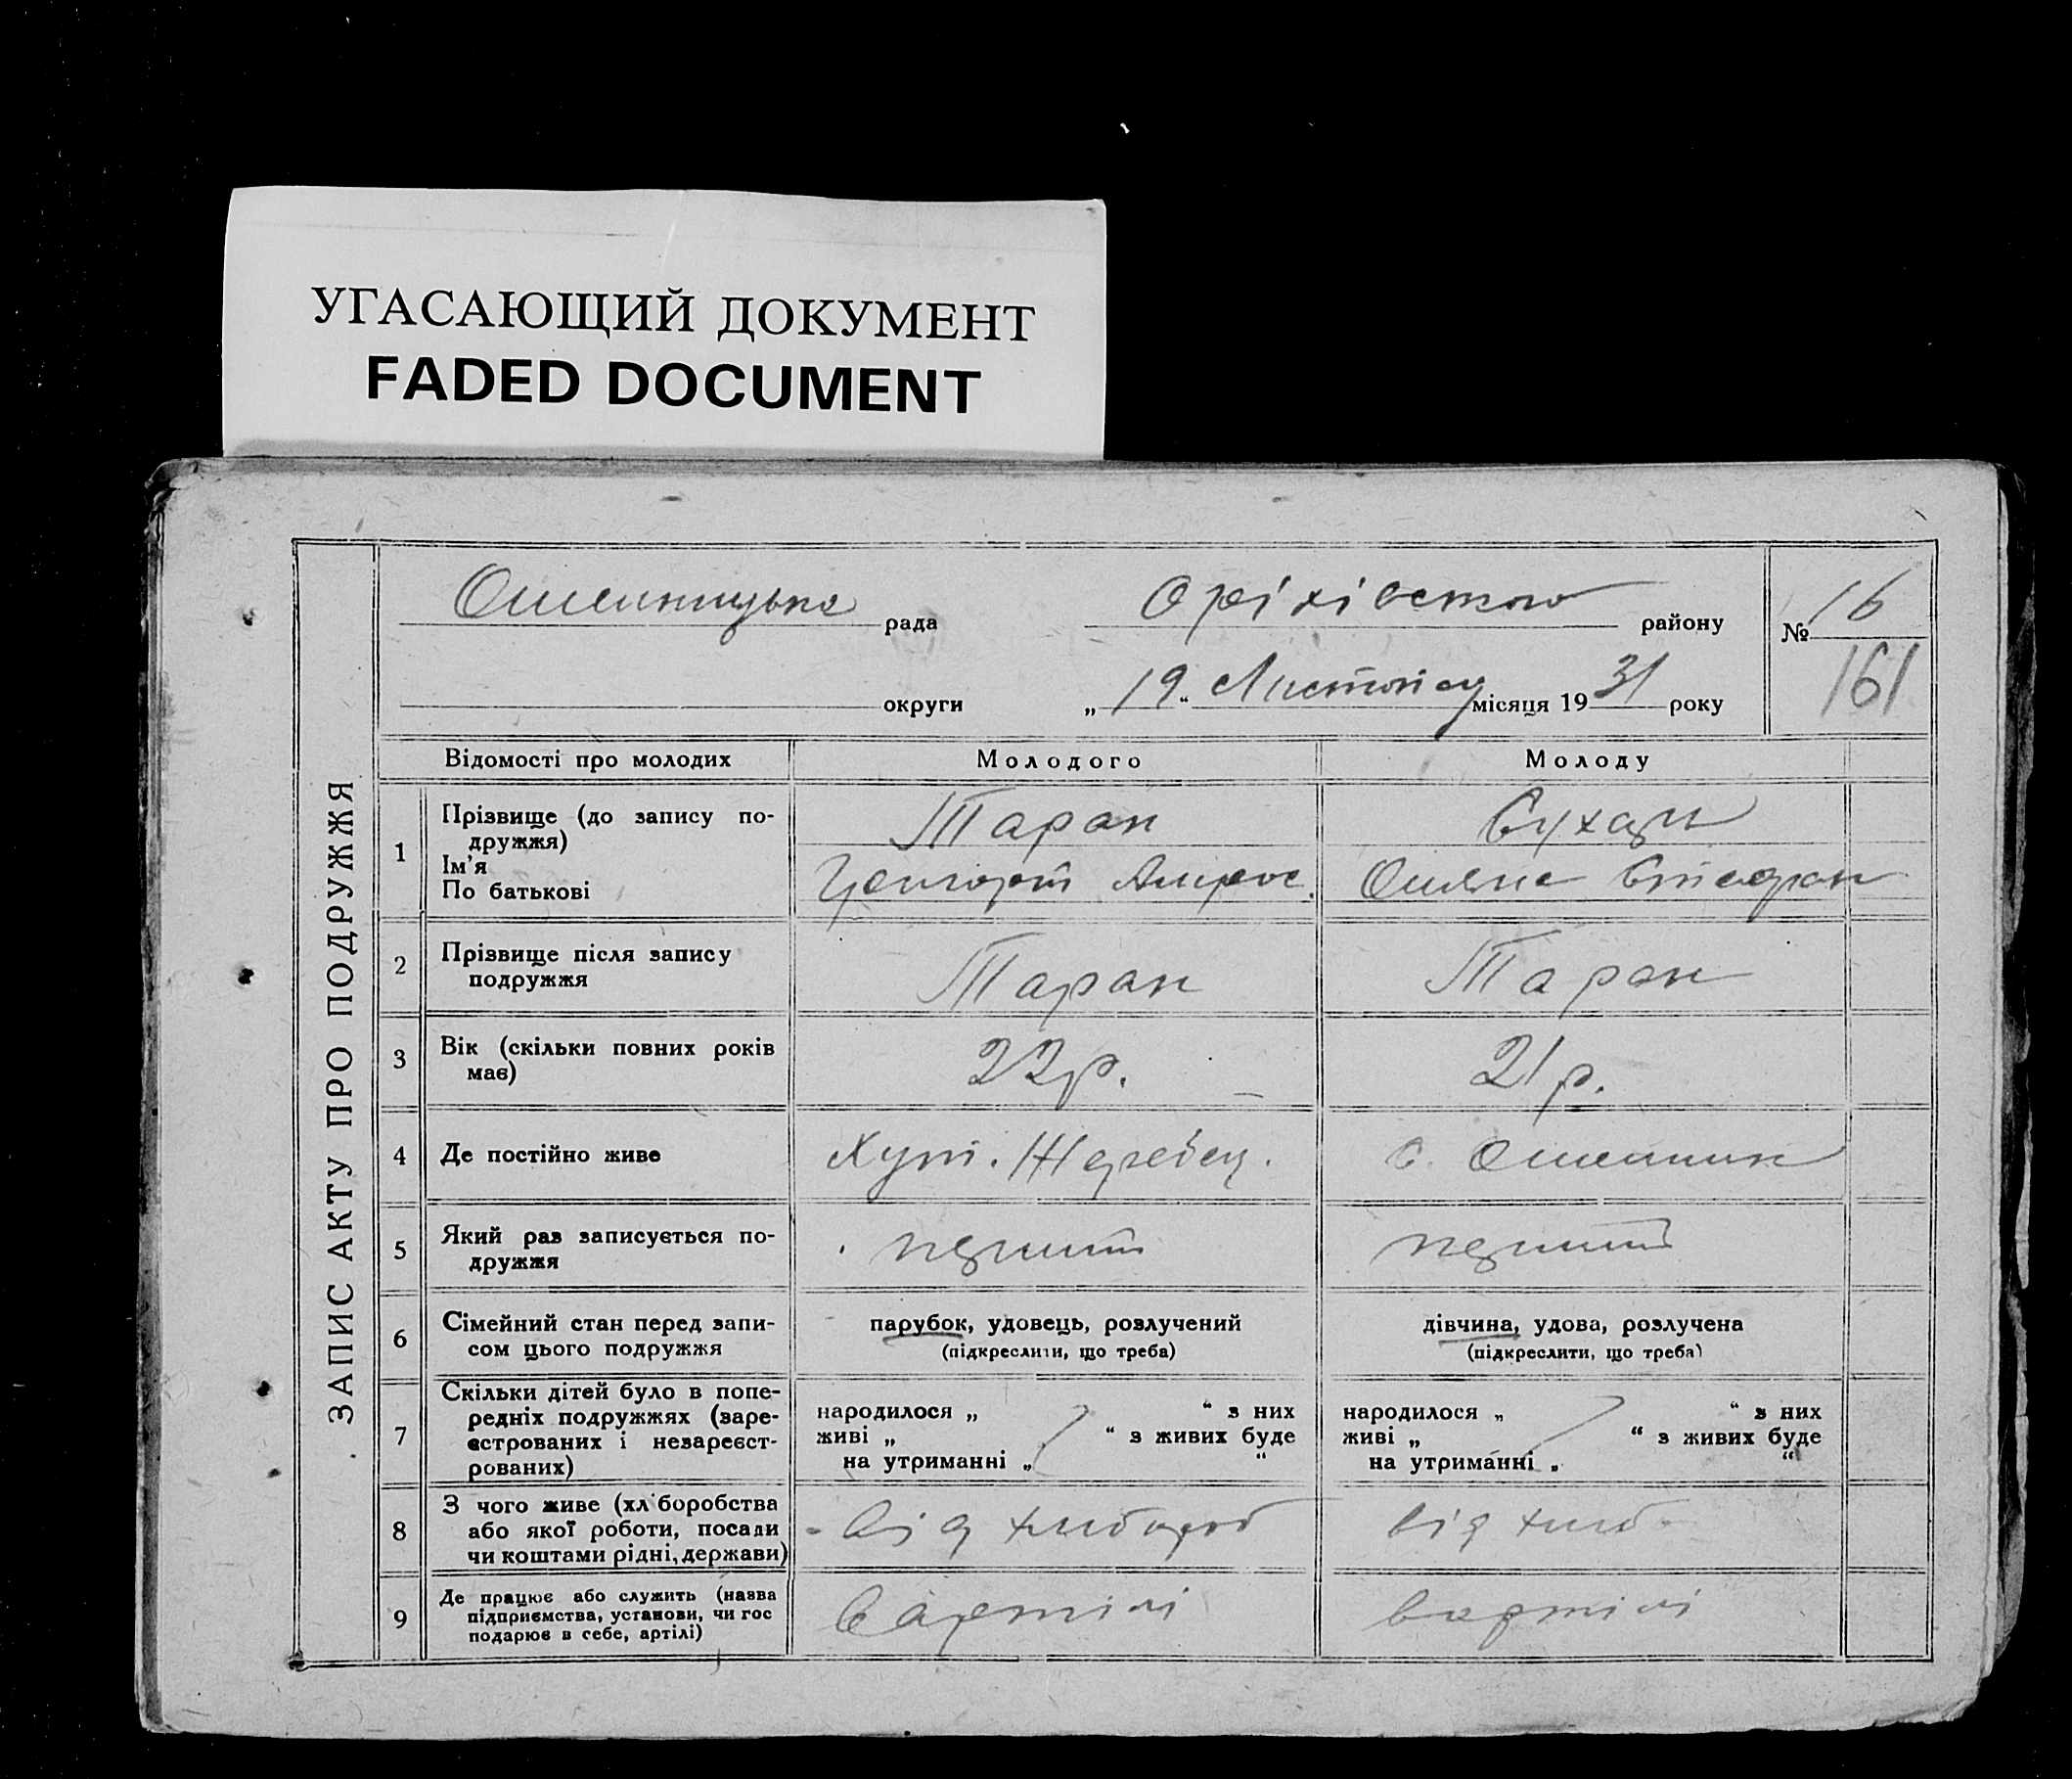 УГАСАЮЩИЙ ДОКУМЕНТ
FADED DOCUMENT
ЗАПИС АКТУ ПРО ПОДРУЖЖЯ
Омельницька рада Оріхівського району № 16
округи „ 19 “ Листопаду місяця 19 31 року 161
Відомості про молодих Молодого Молоду
1 Прізвище (до запису по-
дружжя) Таран Сухар
Ім'я
По батькові
2 Прізвище після запису
подружжя Таран Таран
3 Вік (скільки повних років
має) 22 р. 21 р.
4 Де постійно живе Хут. Жеребец. с. Омельник
5 Який раз записується по-
дружжя перший перший
6 Сімейний стан перед запи-
сом цього подружжя парубок, удовець, розлучений дівчина, удова, розлучена
(підкреслити, що треба) (підкреслити, що треба)
7 Скільки дітей було в попе-
редніх подружжях (заре-
єстрованих і незареєст-
рованих)
народилося „ “ з них народилося „ “ з них
живі „ “ з живих буде живі „ “ з живих буде
на утриманні „ “ на утриманні „ “
8 З чого живе (хліборобства
або якої роботи, посади
чи коштами рідні, держави) від хлібороб від хліб
9 Де працює або служить (назва
підприємства, установи, чи гос
подарює в себе, артілі) в артілі в артілі